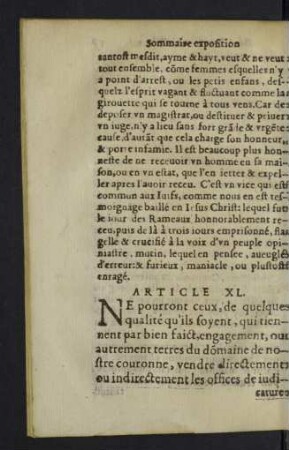 Sommaire exposition
tantost mesdit, ayme & hayt, veut & ne veut
tout ensemble, cõme femmes esquelles n'y
a point d'arrest, ou les petis enfans, des-
quelz l'esprit vagant & fluctuant comme la
girouette qui se tourne à tous vens. Car de
deposer vn magistrat, ou destituer & priuer
vn iuge, n'y a lieu sans fort grãde & vrgẽte
cause, d'autãt que cela charge son honneur,
& porte infamie. Il est beaucoup plus hon-
neste de ne receuoir vn homme en sa mai-
son, ou en vn estat, que l'en ietter & expel-
ler apres l'auoir receu. C'est vn vice qui est
commun aux Iuifs, comme nous en est tes-
moignage baillé en Iesus Christ: lequel fut
le iour des Rameaux honnorablement re-
ceu, puis de là à trois iours emprisonné, fla-
gellé & crucifié à la voix d'vn peuple opi-
niastre, mutin, lequel en pensee, aueuglé
d'erreur: & furieux, maniacle, ou plustost
enragé.
ARTICLE XL.
NE pourront ceux, de quelque
qualité qu'ils soyent, qui tien-
nent par bien faict, engagement, ou
autrement terres du dõmaine de no-
stre couronne, vendre directement
ou indirectement les offices de iudi-
cature